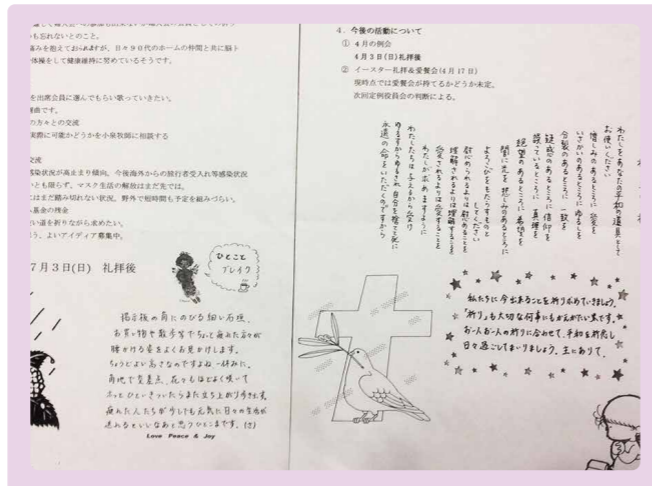 も忘れないとのこと。
痛みを抱えておられますが、日々９０代のホームの仲間と共に脳ト
体操をして健康維持に努めているそうです。
を出席会員に選んでもらい歌っていきたい。
曲です。
の方々との交流
実際に可能かどうかを小泉牧師に相談する
交流
感染状況が高止まり傾向。今後海外からの旅行者受入れ等感染状況
いとも限らず、マスク生活の解放はまだ先では。
にはまだ踏み切れない状況。野外で短時間も予定を組みづらい。
基金の残金
い道を祈りながら求めたい。
う、よいアイディア募集中。
７月３日(日)　礼拝後
ひとこと
ブレイク
掲示板の角にのびる細い石垣。
お買い物や散歩等でちょっと疲れた方々が
腰かける姿をよくお見かけします。
ちょうどよい高さなのですよね、一休みに。
角地で交差点、花々もほどよく咲いて
ホッとひといきついたらまた立ち上がり歩き出す。
疲れた人たちが少しでも元気に日々の生活が
送れるといいなあと思うひとこまです。
Love Peace & Joy
４．今後の活動について
① ４月の例会
４月３日(日)礼拝後
② イースター礼拝＆愛餐会(４月17日)
現時点では愛餐会が持てるかどうか未定。
次回定例役員会の判断による。
わたしをあなたの平和の道具として
お使いください
憎しみのあるところに　愛を
いさかいのあるところに　ゆるしを
分裂のあるところに　一致を
疑惑のあるところに　信仰を
誤っているところに　真理を
絶望のあるところに　希望を
闇に光を　悲しみのあるところに
よろこびをもたらすものと
してください
慰められるよりは　慰めることを
理解されるよりは　理解することを
愛されるよりは　愛することを
わたしが求めますように
わたしたちは　与えるから　受け
ゆるすから　ゆるされ　自分を捨てて死に
永遠の命をいただくのですから
私たちに今出来ることを祈り求めていきましょう。
「祈り」も大切な何事にもかえがたい業です。
お一人お一人の祈りに合わせて、平和を祈念し
日々過ごしてまいりましょう。主にありて。